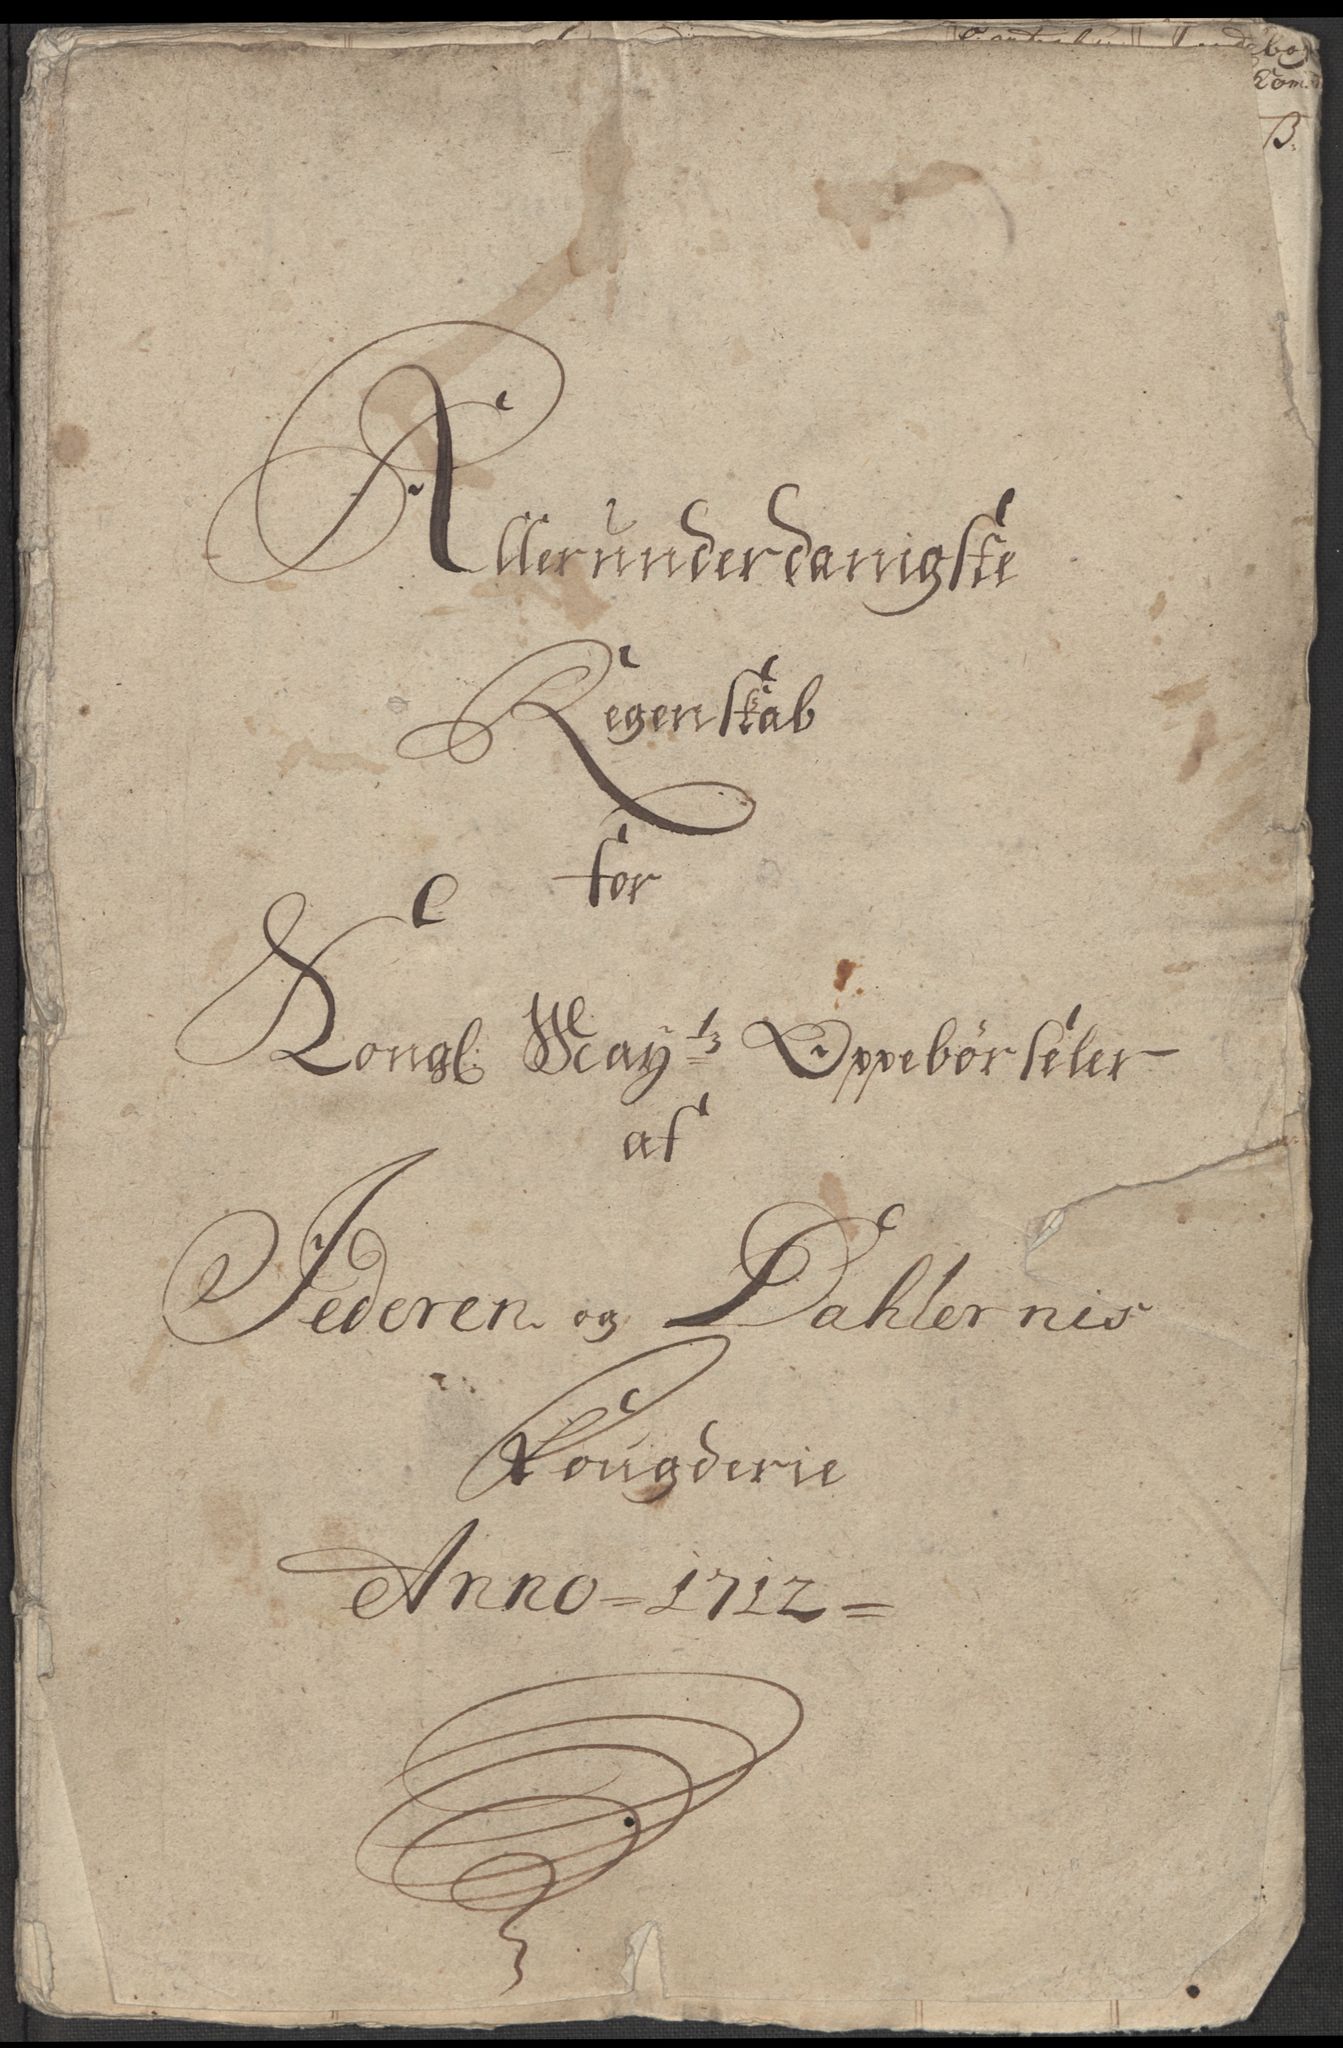 Allerunderdanigste
Regenskab
for
Kongl. May.ts Oppebörseler
af
Jederen og Dahlernis
Fougderie
Anno = 1712 =
B.